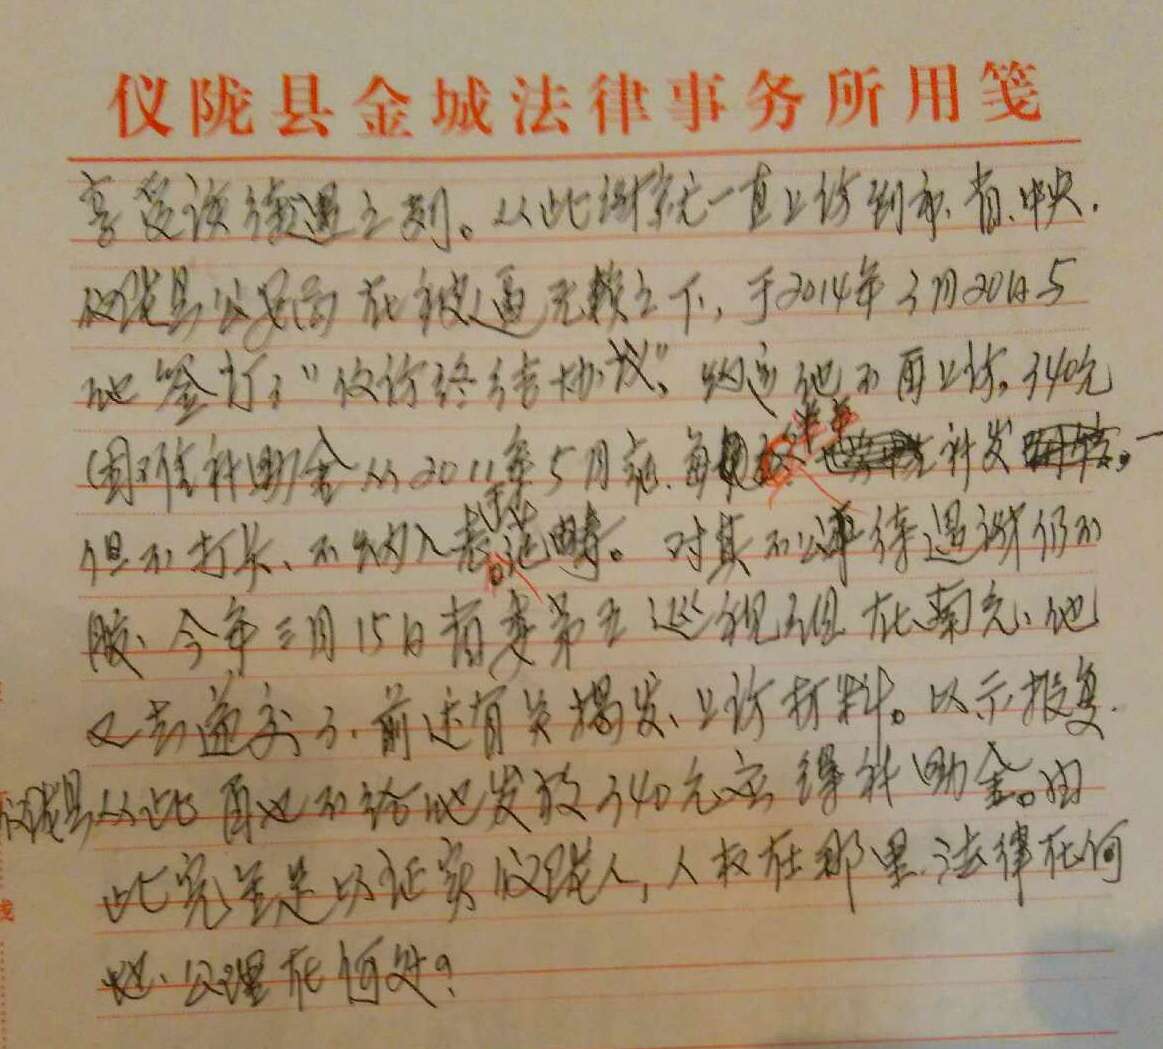 仪陇县金城法律事务所用笺
享受该待遇之列。从此谢就一直上访到市、省、中央.
仪陇县公安局在被逼无赖之下,于2014年3月20日与
他签订了"信访终结协议"。约定他不再上访。340元
(困难补助)金从2011年5月起.每 补发
但不打头、不纳入 。对其不公平待遇谢仍不
服、今年三月15日省委第五巡视组在南充、他
又去递交了、前述有关揭发、上访材料。以示报复.
仪陇县从此再也不给他发放340元应得补助金。由
此完全足以证实仪陇人,人权在那里.法律在何
地、公理在何处?